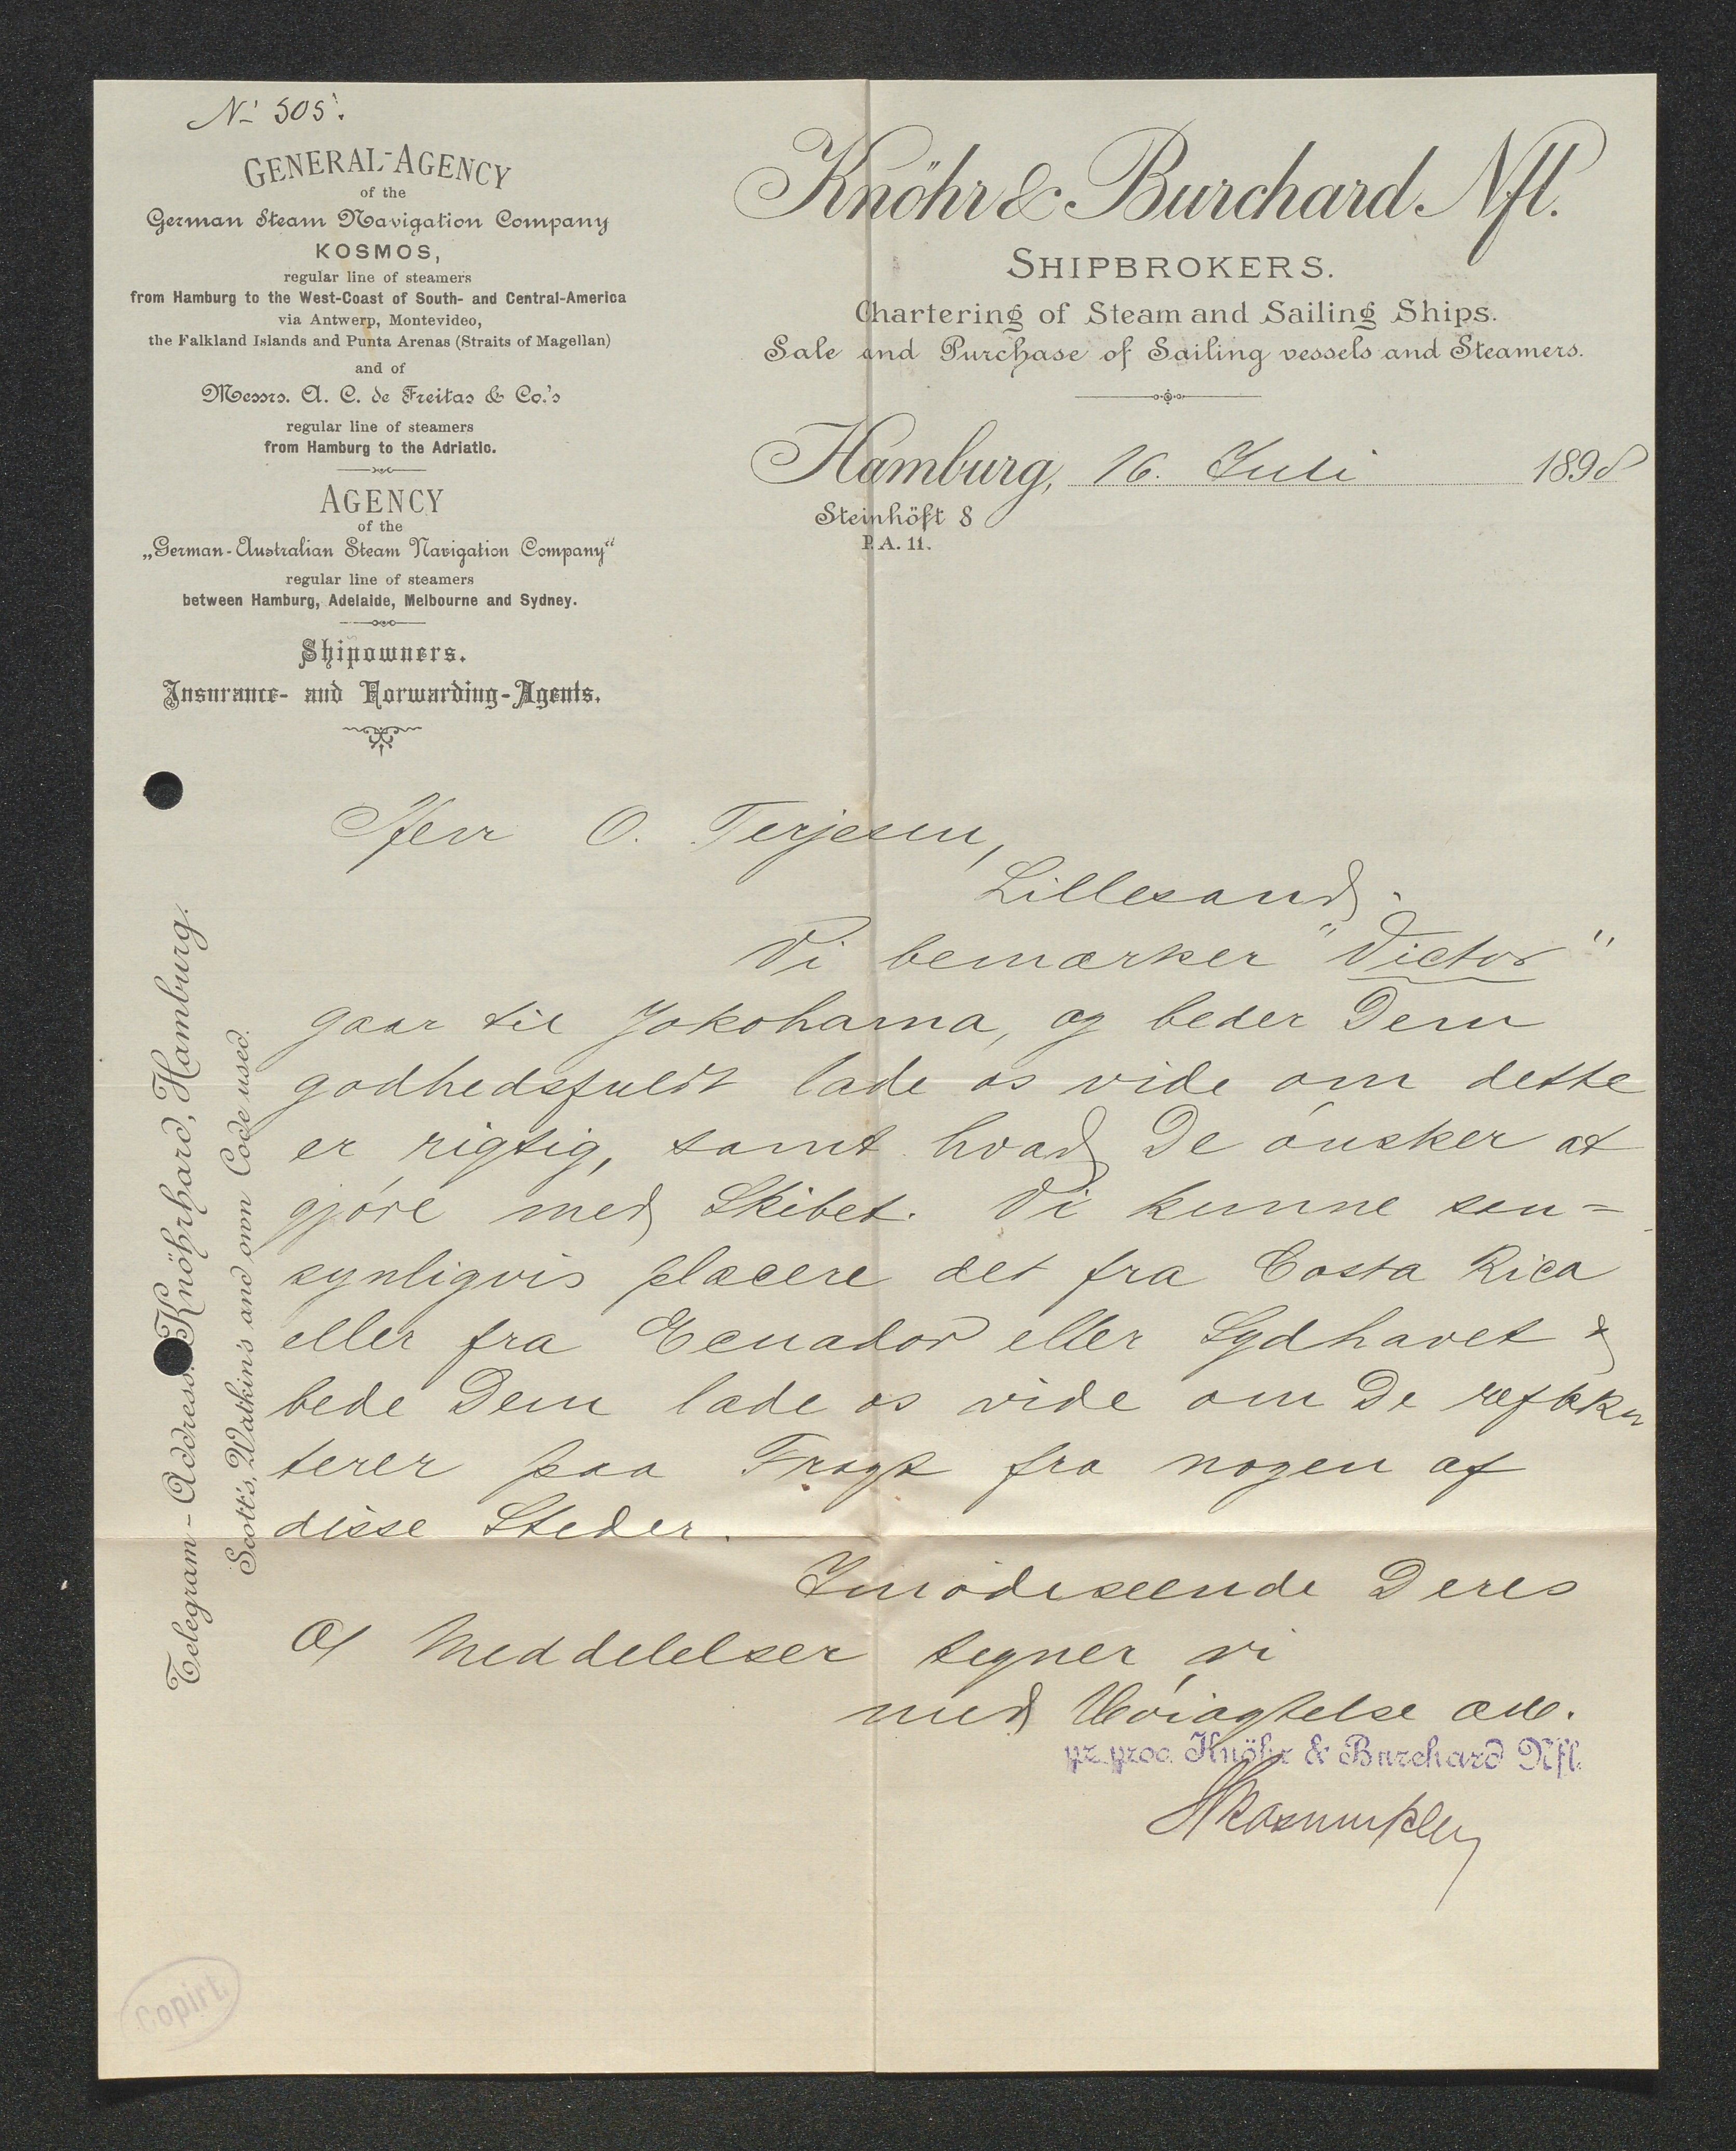 No 505.
GENERAL-AGENCY
of the
German Steam Navigation Company
KOSMOS,
regular line of steamers
from Hamburg to the West-Coast of South- and Central-America
via Antwerp, Montevideo,
the Falkland Islands and Punta Arenas (Straits of Magellan)
and of
Messrs. A. C. de Freitas & Co.'s
regular line of steamers
from Hamburg to the Adriatic.
AGENCY
of the
„German-Australian Steam Navigation Company“
regular line of steamers
between Hamburg, Adelaide, Melbourne and Sydney.
Shipowners.
Insurance- and Forwarding-Agents.
Knöhr & Burchard Nfl.
SHIPBROKERS.
Chartering of Steam and Sailing Ships.
Sale and Purchase of Sailing vessels and Steamers.
Hamburg, 16. Juli 1898
Steinhöft 8
P.A. 11.
Telegram-Address: Knöhrhard, Hamburg.
Scott's, Watkin's and own Code used.
Herr O. Terjesen,
Lillesand.
Vi bemærker "Victor"
gaar til Yokohama, og beder Dem
godhedsfuldt lade os vide om dette
er rigtig, samt hvad De ónsker at
gjóre med Skibet. Vi kunne san=
synligvis placere det fra Costa Rica
eller fra Ecuador eller Sydhavet &
bede Dem lade os vide om De reflek
terer paa Fragt fra nogen af
disse Steder.
Imódeseende Deres
Meddelelser tegner vi
med Hóiagtelse
pr. proc. Knöhr & Burchard Nfl.
Copirt.